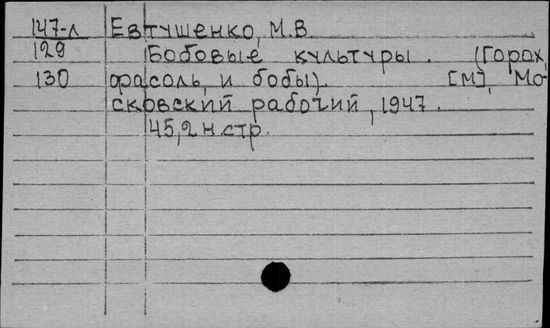 147-л Евтушенко, М.В.
129 Бобовые культуры. (Горох,
130 фасоль, и бобы). [М], Мо-
сковский рабочий, 1947.
45,2 н.стр.